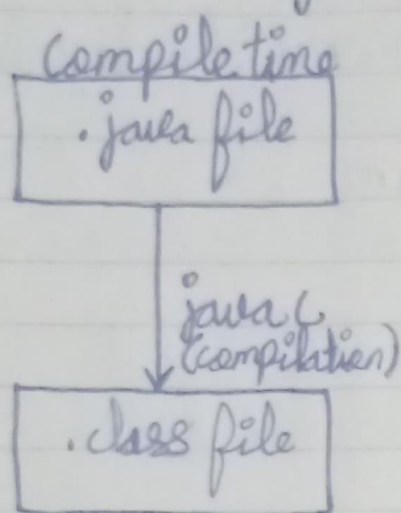 Compile time
.java file
java c
(compilation)
.class file